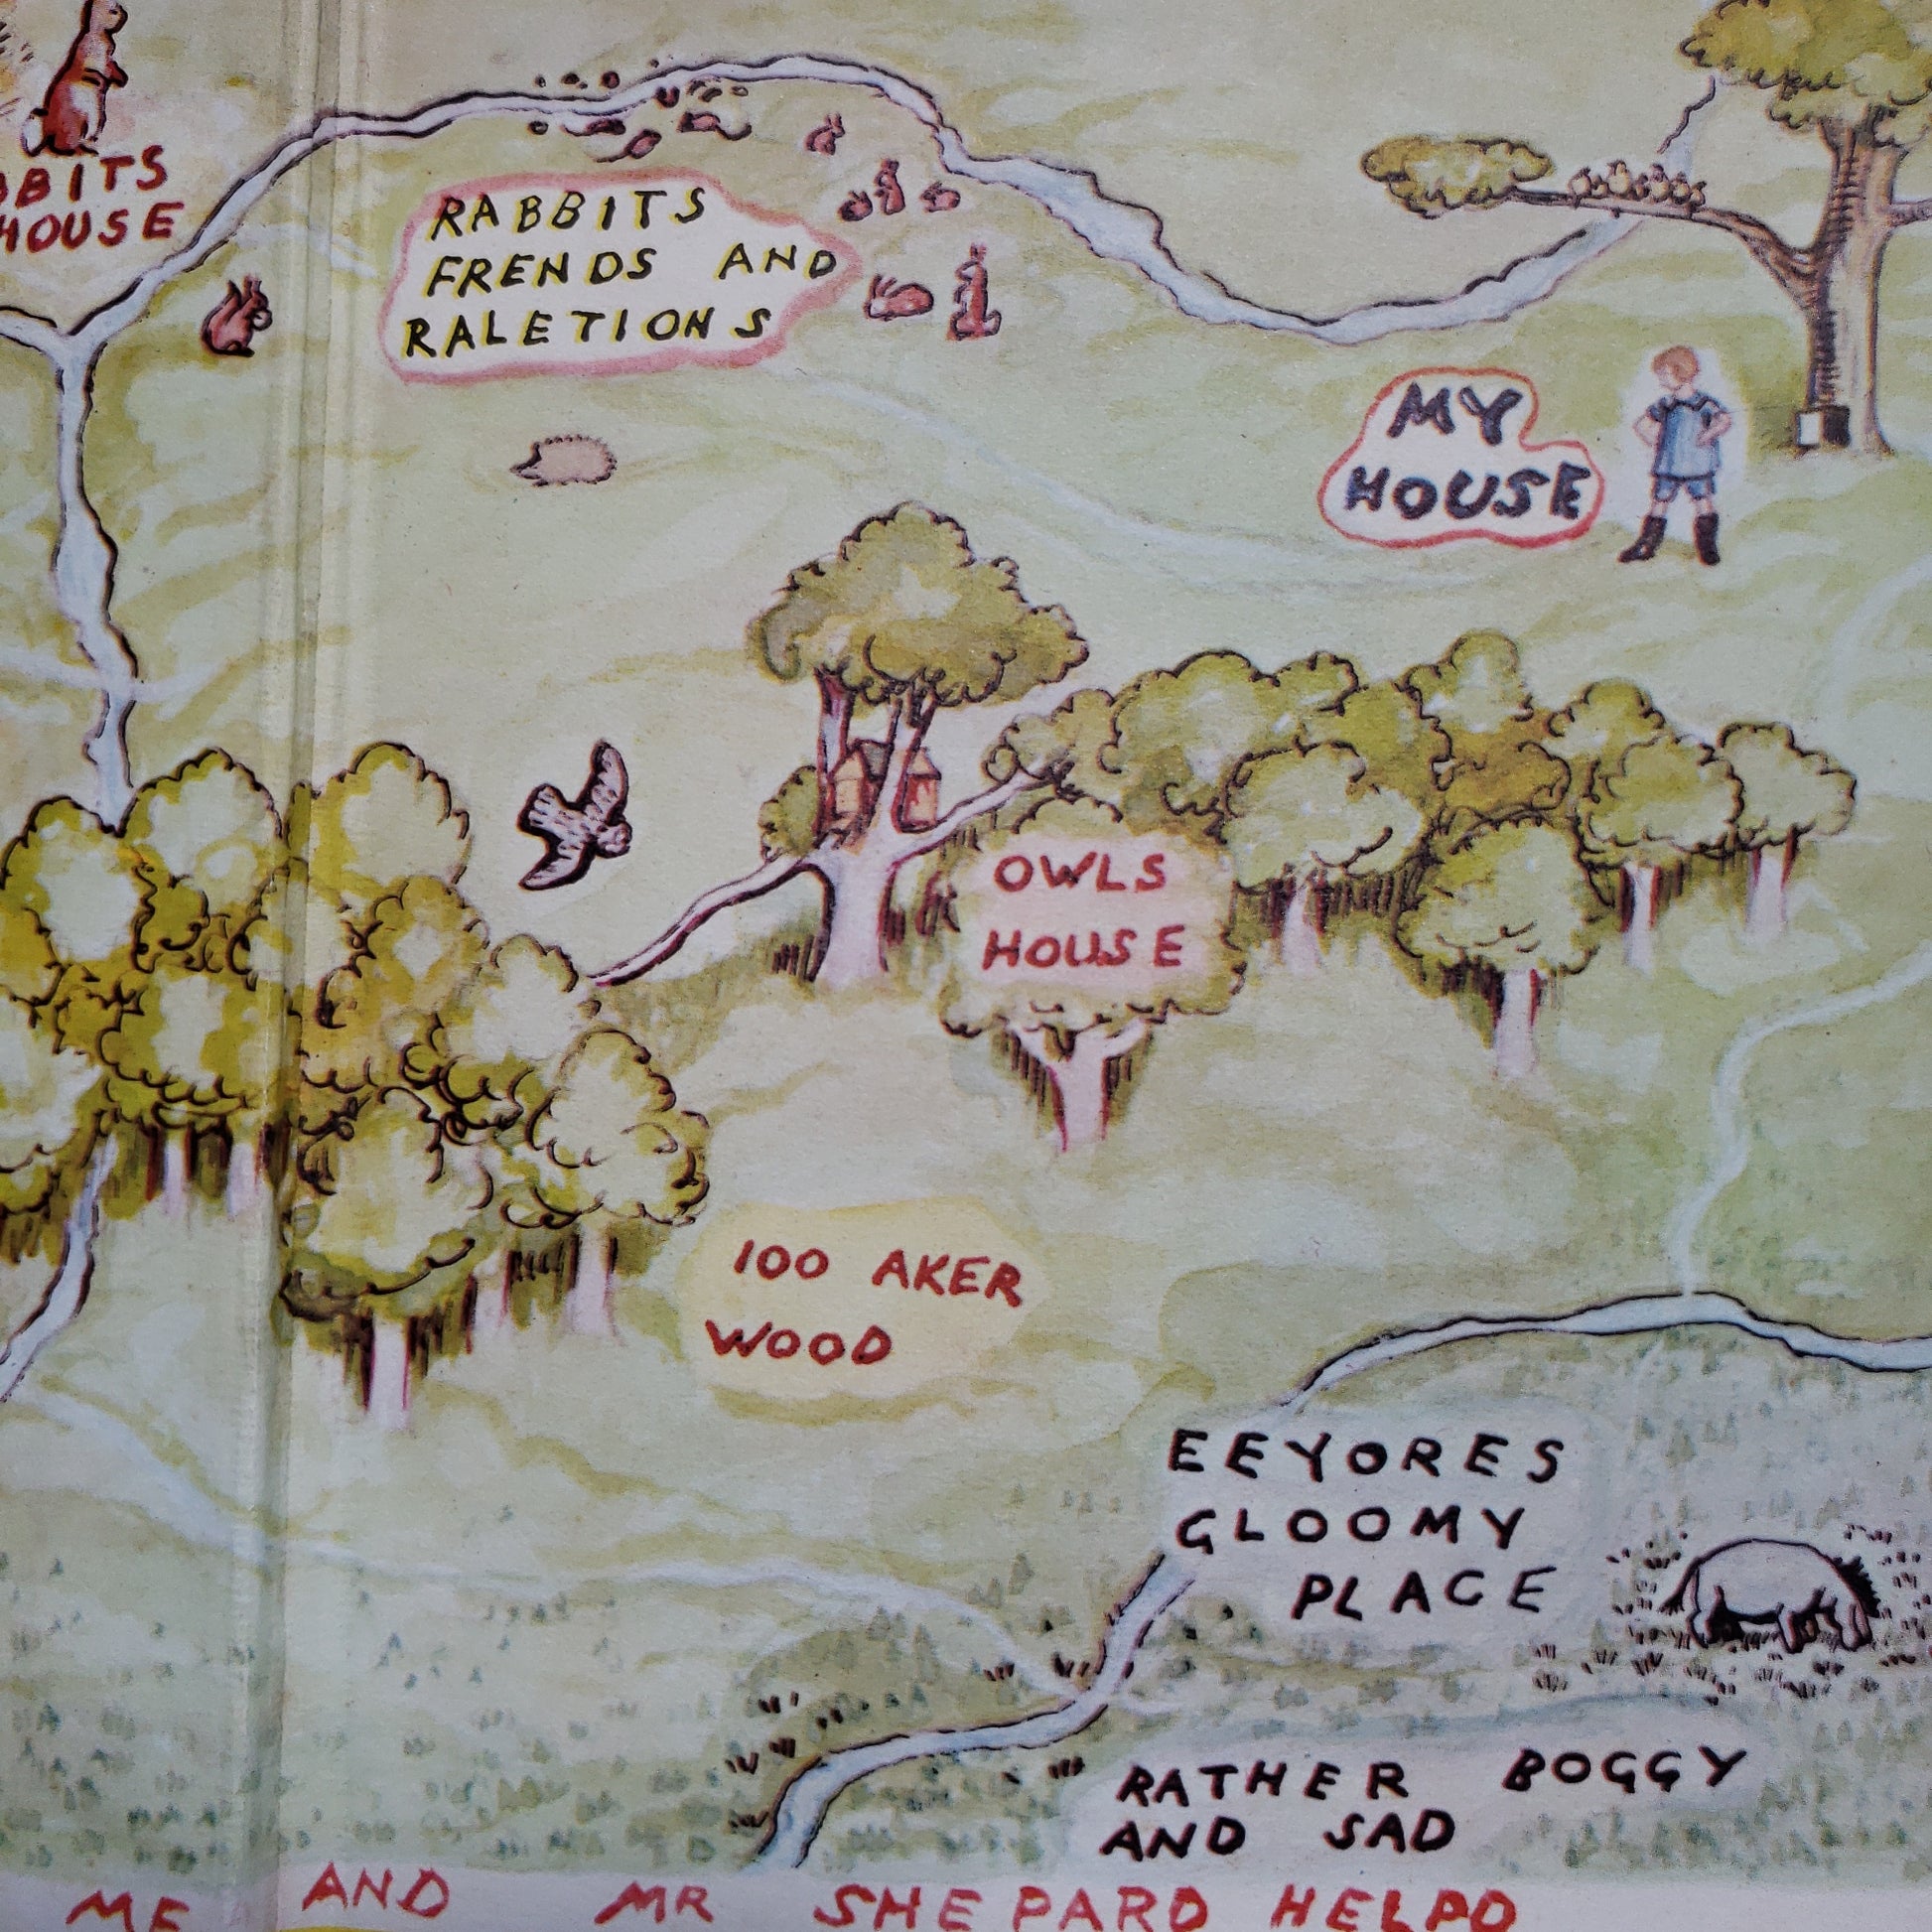 BBITS
HOUSE
RABBITS
FRENDS AND
RALETIONS
MY
HOUSE
OWLS
HOUSE
100 AKER
WOOD
EEYORES
GLOOMY
PLACE
RATHER BOGGY
AND SAD
ME AND MR SHEPARD HELPD